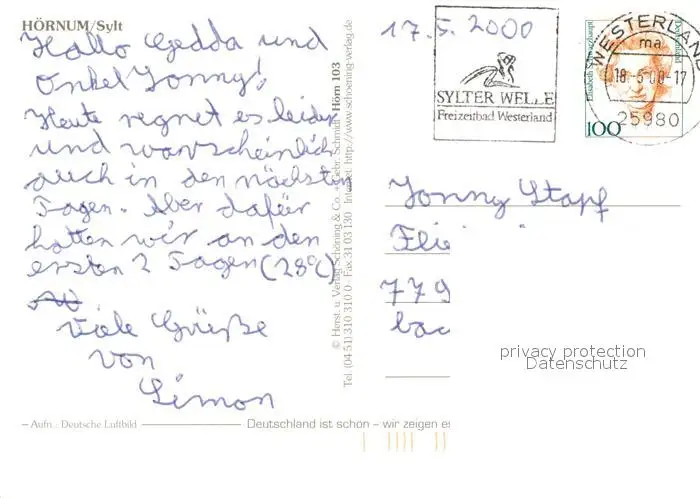 HÖRNUM/Sylt
Hallo Gedda und
Onkel Jonny!
Heute regnet es leider
und warscheinlich
auch in den nächsten
Tagen. Aber dafür
hatten wir an den
ersten 2 Tagen (28°C)
Viele Grüße
von
Simon
Aufn.: Deutsche Luftbild
Deutschland ist schön – wir zeigen es
© Herst. u. Verlag Schöning & Co. + Gebr. Schmidt Hörn 103
Tel. (04 51) 310 310 0 Fax 31 03 130 Internet: http://www.schoening-verlag.de
17.5. 2000
SYLTER WELLE
Freizeitbad Westerland
WESTERLAND
ma
18.-5.00-17
25980
Elisabeth Schwarzhaupt
Deutschland
100
Jonny Stapf
Flie
779
bac
privacy protection
Datenschutz